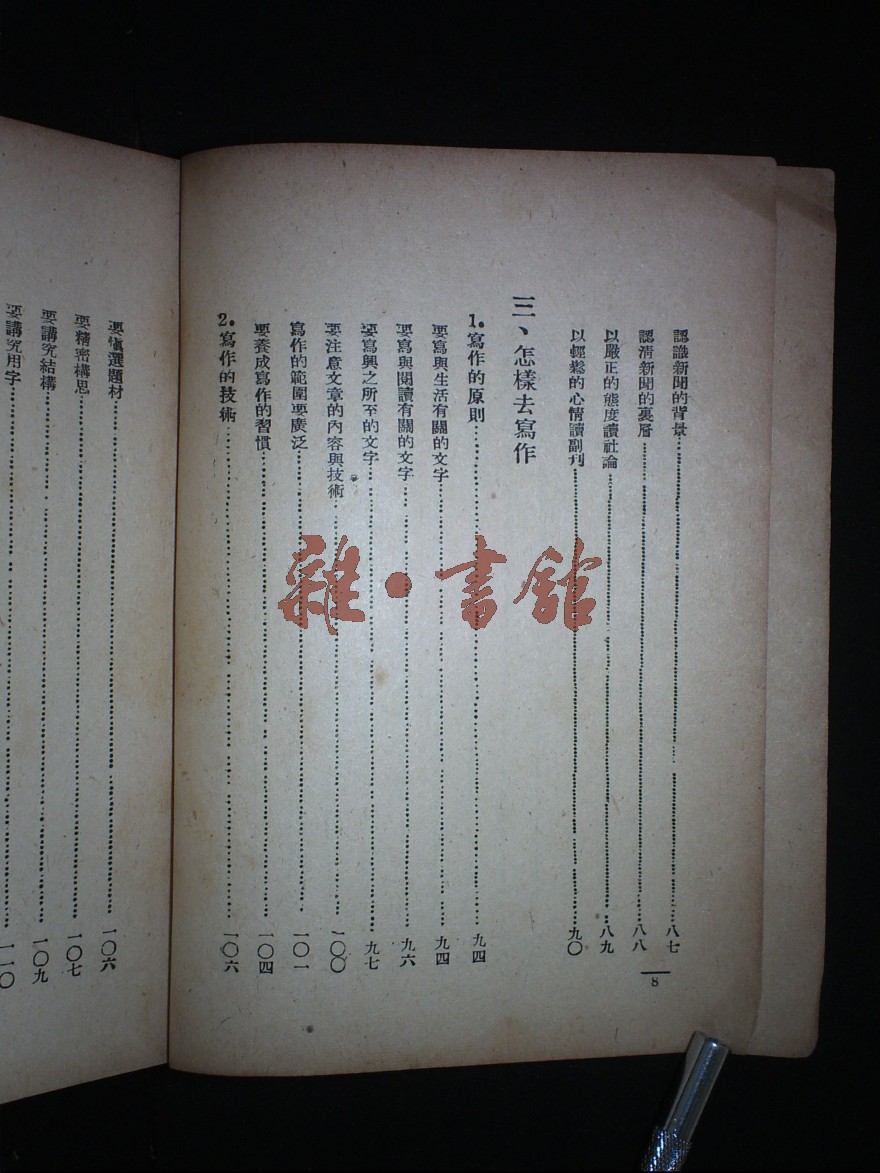 認識新聞的背景……八七
認清新聞的裏層……八八
以嚴正的態度讀社論……八九
以輕鬆的心情讀副刋……九〇
三、怎樣去寫作
1.寫作的原則……九四
要寫與生活有關的文字……九四
要寫與閱讀有關的文字……九六
要寫興之所至的文字……九七
要注意文章的內容與技術……一〇〇
寫作的範圍要廣泛……一〇一
要養成寫作的習慣……一〇四
2.寫作的技術……一〇六
8
要愼選題材……一〇六
要精密構思……一〇七
要講究結構……一〇九
要講究用字……一一〇
雜·書館